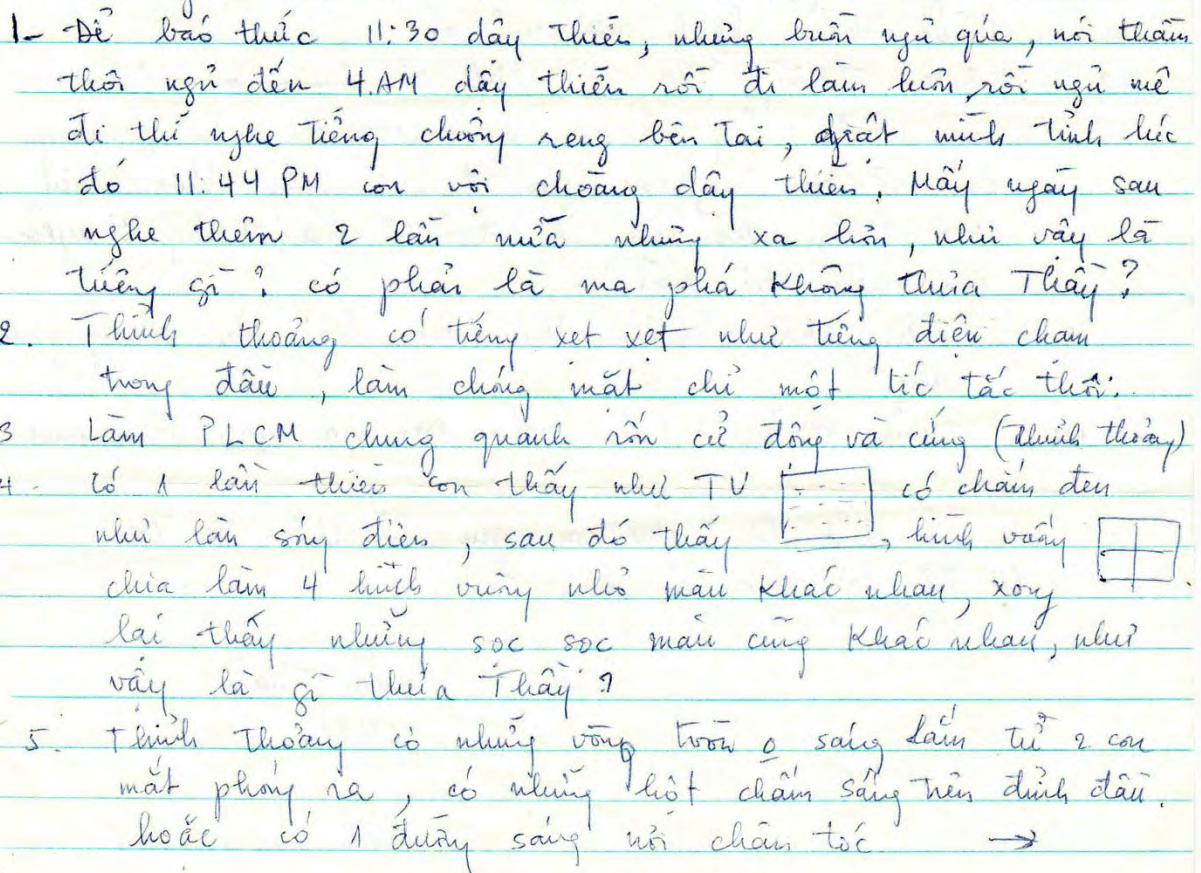 1- Để báo thức 11:30 dậy thiền, nhưng buồn ngủ qúa, nói thầm
thôi ngủ đến 4.AM dậy thiền rồi đi làm luôn, rồi ngủ mê
đi thì nghe tiếng chuông reng bên tai, giật mình tỉnh lúc
đó 11:44 PM con vội choàng dậy thiền. Mấy ngày sau
nghe thêm 2 lần nữa nhưng xa hơn, như vậy là
tiếng gì? có phải là ma phá không thưa Thầy?
2. Thỉnh thoảng có tiếng xẹt xẹt như tiếng điện chạm
trong đầu, làm chóng mặt chỉ một tíc tắc thôi.
3 Làm PLCM chung quanh rốn cử động và cứng (thỉnh thoảng)
4. Có 1 lần thiền con thấy như TV có chấm đen
như làn sóng điện, sau đó thấy, hình vuông
chia làm 4 hình vuông nhỏ màu khác nhau, xong
lại thấy những sọc sọc màu cũng khác nhau, như
vậy là gì thưa Thầy?
5. Thỉnh thoảng có những vòng tròn o sáng lắm từ 2 con
mắt phóng ra, có những hột chấm sáng trên đỉnh đầu.
hoặc có 1 đường sáng nơi chân tóc →